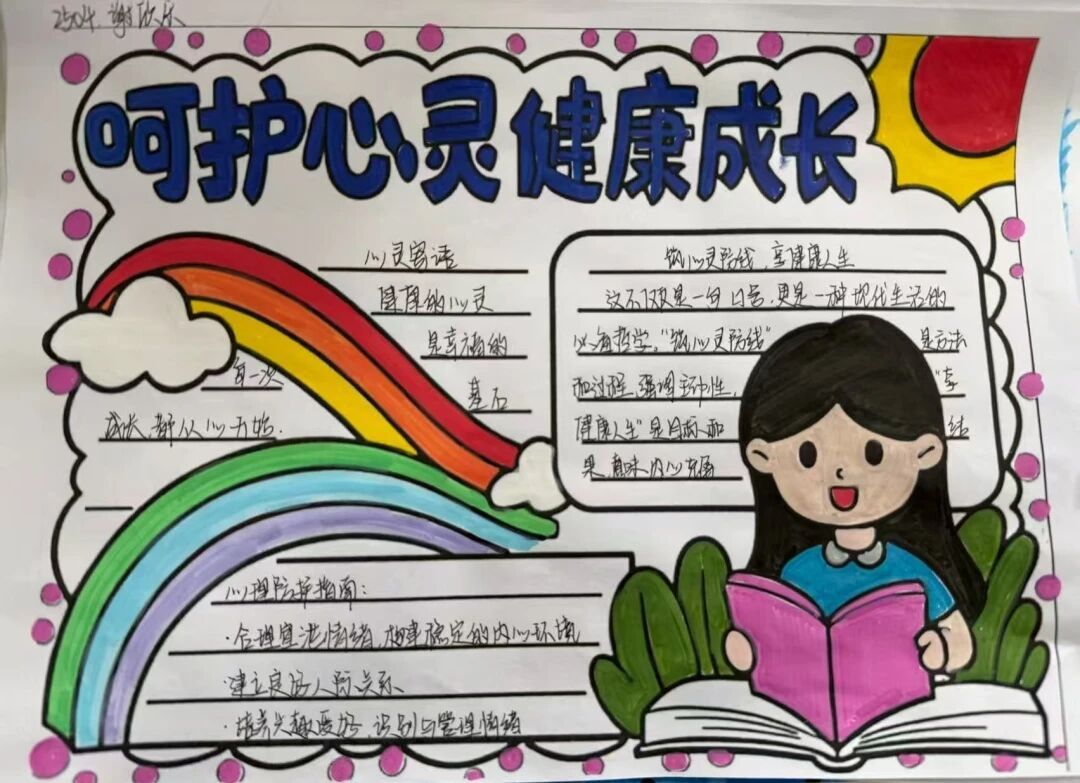 2504. 谢欣乐
呵护心灵健康成长
心灵寄语
健康的心灵
是幸福的
基石
每一次
成长,都从心开始.
筑心灵防线,享健康人生
这不仅是一句口号,更是一种现代生活的
心海哲学,"筑心灵防线" 是方法
和过程,强调主动性, "享
健康人生"是目标和 结
果,意味内心充盈
心理防护指南:
·合理宣泄情绪,构建稳定的内心环境
·建立良好人际关系
·培养兴趣爱好 识别与管理情绪